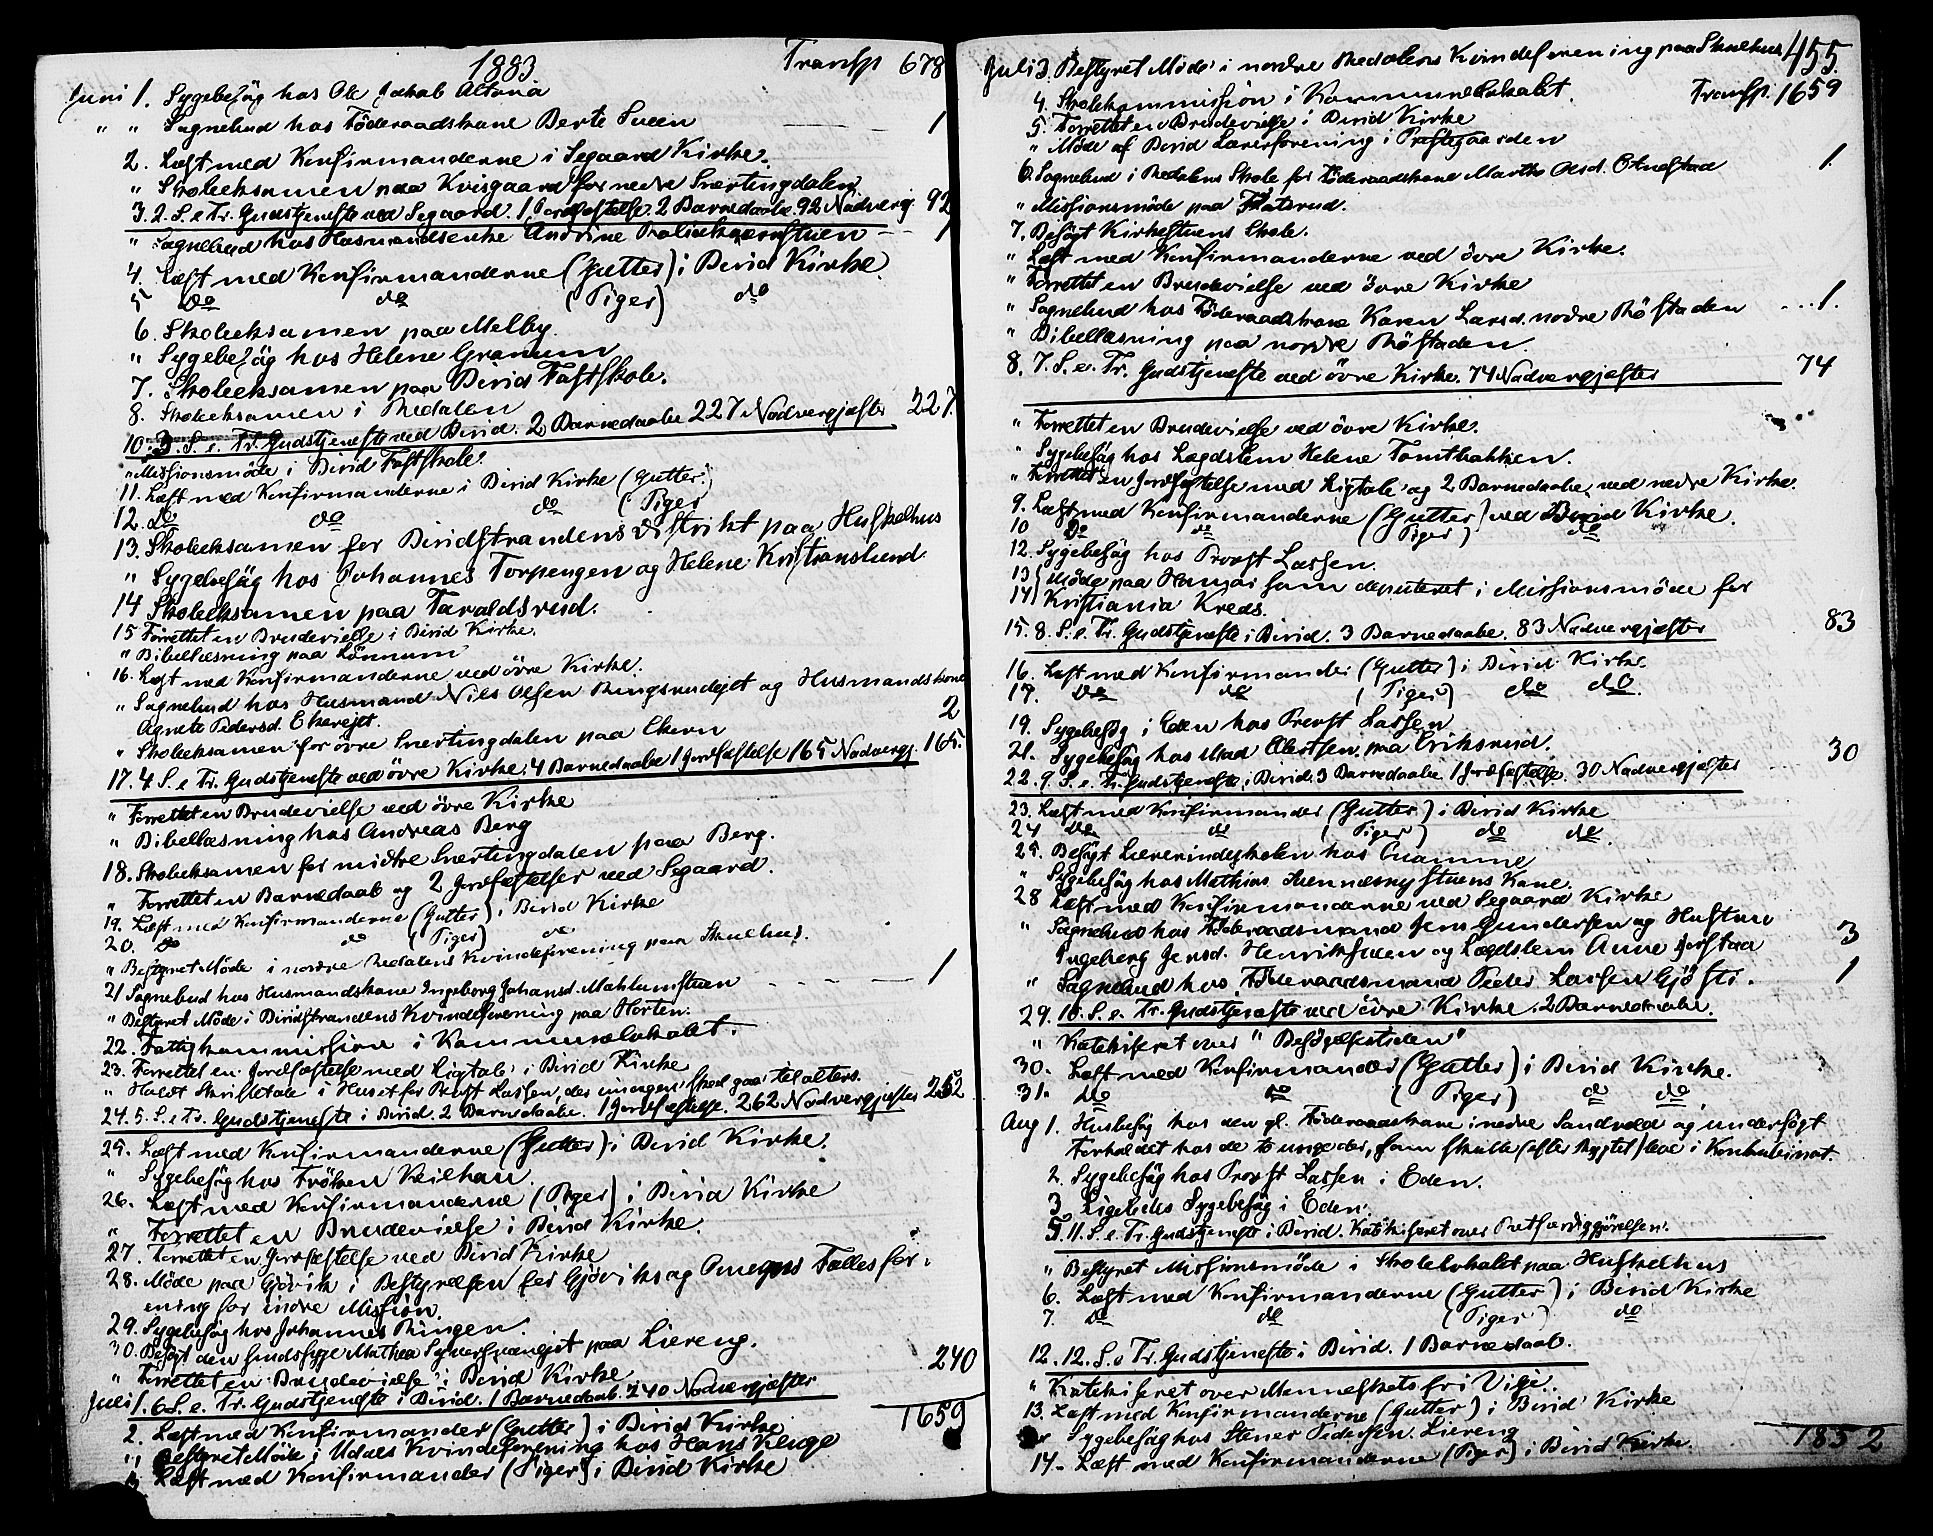 1883. Transp 678
Juni 1. Sygebesøg hos Ole Jakob Altona
" " Sognebud hos Föderaadskone Berte Sveen — — 1
2. Læst med Konfirmanderne i Segaard Kirke.
" Skoleeksamen paa Kvisgaard for nedre Snertingdalen
3. 2. S. e Tr. Gudstjeneste ved Segaard. 1 Jordfæstelse. 2 Barnedaabe. 92 Nadvergj. 92
" Sognebud hos Husmandsenke Andrine — 1
4. Læst med Konfirmanderne (Gutter) i Birid Kirke.
5 do do (Piger) do
6. Skoleeksamen paa Melby.
" Sygebesög hos Helene Granum
7. Skoleeksamen paa Birid Fastskole.
8. Skoleeksamen i Redalen
10. 3. S. e. Tr. Gudstjeneste ved Birid. 2 Barnedaabe 227 Nadvergjæster 227.
" Missionsmöde i Birid Fastskole.
11. Læst med Konfirmanderne i Birid Kirke (Gutter.)
12. do do do (Piger
13. Skoleeksamen for Biridstrandens distrikt paa Huskelhus
" Sygebesög hos Johannes Torpengen og Helene Kristianslund
14 Skoleeksamen paa Taraldsrud.
15 Forrettet en Brudevielse i Birid Kirke.
" Bibellæsning paa Lönnum
16. Læst med Konfirmanderne ved övre Kirke.
" Sognebud hos Husmand Nils Olsen Ringsrudejet og Husmandskone
Agnete Pedersd. Ekerejet. 2
" Skoleeksamen for övre Snertingdalen paa Ekern
17. 4 S. e Tr. Gudstjeneste ved övre Kirke. 4 Barnedaabe 1 Jordfæstelse 165 Nadvergj. 165.
" Forrettet en Brudevielse ved övre Kirke
" Bibellæsning hos Andreas Berg
18. Skoleeksamen for midtre Snertingdalen paa Berg.
" Forrettet en Barnedaab og 2 Jordfæstelser ved Segaard.
19. Læst med Konfirmanderne (Gutter) i Birid Kirke
20. do do (Piger) do
" Bestyret Möde i nordre Redalens Kvindeforening paa Skulhus.
21 Sognebud hos Husmandskone Ingeborg Johansd. Mahlumstuen — — — 1
" Bestyret Möde i Biridstrandens Kvindeforening paa Horten.
22. Fattigkommission i Kommunelokalet.
23. Forrettet en Jordfæstelse med Ligtale i Birid Kirke
" Holdt Skriftetale i Huset for Provst Lassen, der imorgen skal gaa til alters.
24. 5. S. e Tr. Gudstjeneste i Birid. 2 Barnedaabe. 1 Jordfæstelse. 262 Nadvergjæster 262
25. Læst med Konfirmanderne (Gutter) i Birid Kirke.
" Sygebesög hos Fröken Keilhau
26. Læst med Konfirmanderne (Piger) i Birid Kirke
" Forrettet en Brudevielse i Birid Kirke.
27. Forrettet en Jordfæstelse ved Birid Kirke
28. Möde paa Gjövik i Bestyrelsen for Gjöviks og Omegns Fællesfor-
ening for indre Mission.
29. Sygebesög hos Johannes Ringen.
30. Besögt den sindssyge Mathea paa Liereng.
" Forrettet en Brudevielse i Birid Kirke
Juli 1. 6 S. e. Tr. Gudstjeneste i Birid. 1 Barnedaab. 240 Nadvergjæster 240
1659
2. Læst med Konfirmander (Gutter) i Birid Kirke
" Bestyret Möde i Udals Kvindeforening hos Hans Kluge
3 Læst med Konfirmander (Piger) i Birid Kirke
455.
Juli 3. Bestyret Möde i nordre Redalens Kvindeforening paa Skulhus
4. Skolekommission i Kommunelokalet. Transp. 1659
5. Forrettet en Brudevielse i Birid Kirke
" Möde af Birid Lærerforening i Prestegaarden
6. Sognebud i Redalens Skole for Föderaadskone Marthe Olsd. 1.
" Missionsmöde paa
7. Besögt Kirkestuens Skole.
" Læst med Konfirmanderne ved övre Kirke.
" Forrettet en Brudevielse ved övre Kirke
" Sognebud hos Föderaadskone Karen Larsd. nordre Röstaden ...1.
" Bibellæsning paa nordre Röstaden.
8. 7. S. e. Tr. Gudstjeneste ved övre Kirke. 74 Nadvergjæster 74
" Forrettet en Brudevielse ved övre Kirke.
" Sygebesög hos Lægdslem Helene Tomtbakken.
" Forrettet en Jordfæstelse med Ligtale og 2 Barnedaabe ved nedre Kirke.
9. Læst med Konfirmanderne (Gutter) ved Birid Kirke.
10 do do (Piger) do
12. Sygebesög hos Provst Lassen.
13) Möde paa Hamar som deputeret i Missionsmöde for
14) Kristiania Kreds.
15. 8. S. e. Tr. Gudstjeneste i Birid. 3 Barnedaabe. 83 Nadvergjæster 83
16. Læst med Konfirmander (Gutter) i Birid Kirke
17. do do (Piger) do do.
19. Sygebesög i Eden hos Provst Lassen
21. Sygebesög hos Mad paa Eriksrud.
22. 9. S. e. Tr. Gudstjeneste i Birid. 3 Barnedaabe 1 Jordfæstelse. 30 Nadvergjæster .... 30
23. Læst med Konfirmander (Gutter) i Birid Kirke
24 do do (Piger) do do.
25. Besögt Lærerindeskolen hos
" Sygebesög hos Mathias Kone.
28 Læst med Konfirmanderne ved Segaard Kirke
" Sognebud hos Föderaadsmand Jens Gundersen og Hustru
Ingeborg Jensd. Henriksveen og Lægdslem Anne 3
" Sognebud hos Föderaadsmand Peder Larsen . 1
29. 10. S. e. Tr. Gudstjeneste ved övre Kirke. 2 Barnedaabe.
" Katekiseret over "Besögelsestiden"
30. Læst med Konfirmander (Gutter) i Birid Kirke.
31. do do (Piger) do do
Aug 1. Husbesög hos den gl. Föderaadskone i nedre Sandvold og undersögt
Forholdet hos de to unge der, som skulle (efter Rygtet) leve i Konkubinat.
2. Sygebesög hos Provst Lassen i Eden.
3 Ligeledes Sygebesög i Eden.
5 11. S. e. Tr. Gudstjeneste i Birid. Katekiseret over Retfærdiggjörelsen.
" Bestyret Missionsmöde i Skolelokalet paa Huskelhus
6. Læst med Konfirmanderne (Gutter) i Birid Kirke
7. do do (Piger) do
12. 12. S. e Tr. Gudstjeneste i Birid. 1 Barnedaab.
" Katekiseret over Menneskets fri Vilje.
13. Læst med Konfirmanderne (Gutter) i Birid Kirke
" Sygebesög hos Stener Pedersen Liereng
14. Læst med Konfirmanderne (Piger) i Birid Kirke. 1852